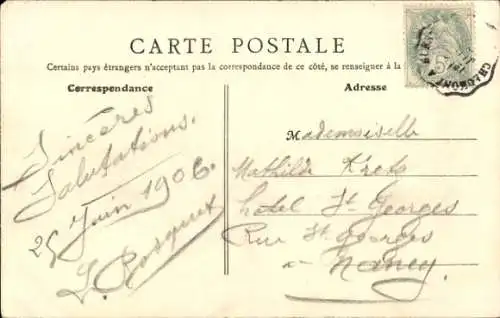 CARTE POSTALE
Certains pays étrangers n'acceptant pas la correspondance de ce côté, se renseigner à la
Correspondance
Adresse
Sincères
Salutations.
25 Juin 1906.
Mademoiselle
Mathilde
hotel St Georges
Rue St Georges
a Nancy
5